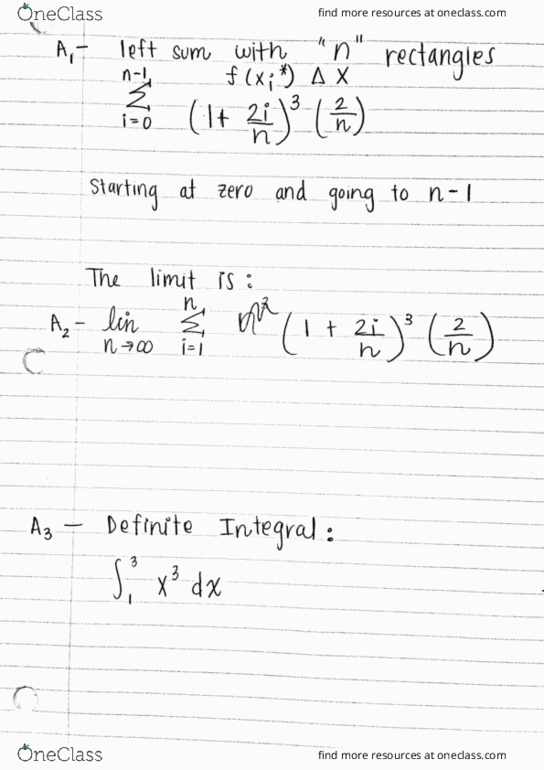 OneClass find more resources at oneclass.com
A₁ - left sum with "n" rectangles
n-1 f(xᵢ*) Δx
Σ
i=0 (1 + 2i/n)³ (2/n)
starting at zero and going to n-1
The limit is:
A₂ - lin n→∞ n Σ i=1 (1 + 2i/n)³ (2/n)
A₃ - Definite Integral:
∫₁³ x³ dx
OneClass find more resources at oneclass.com